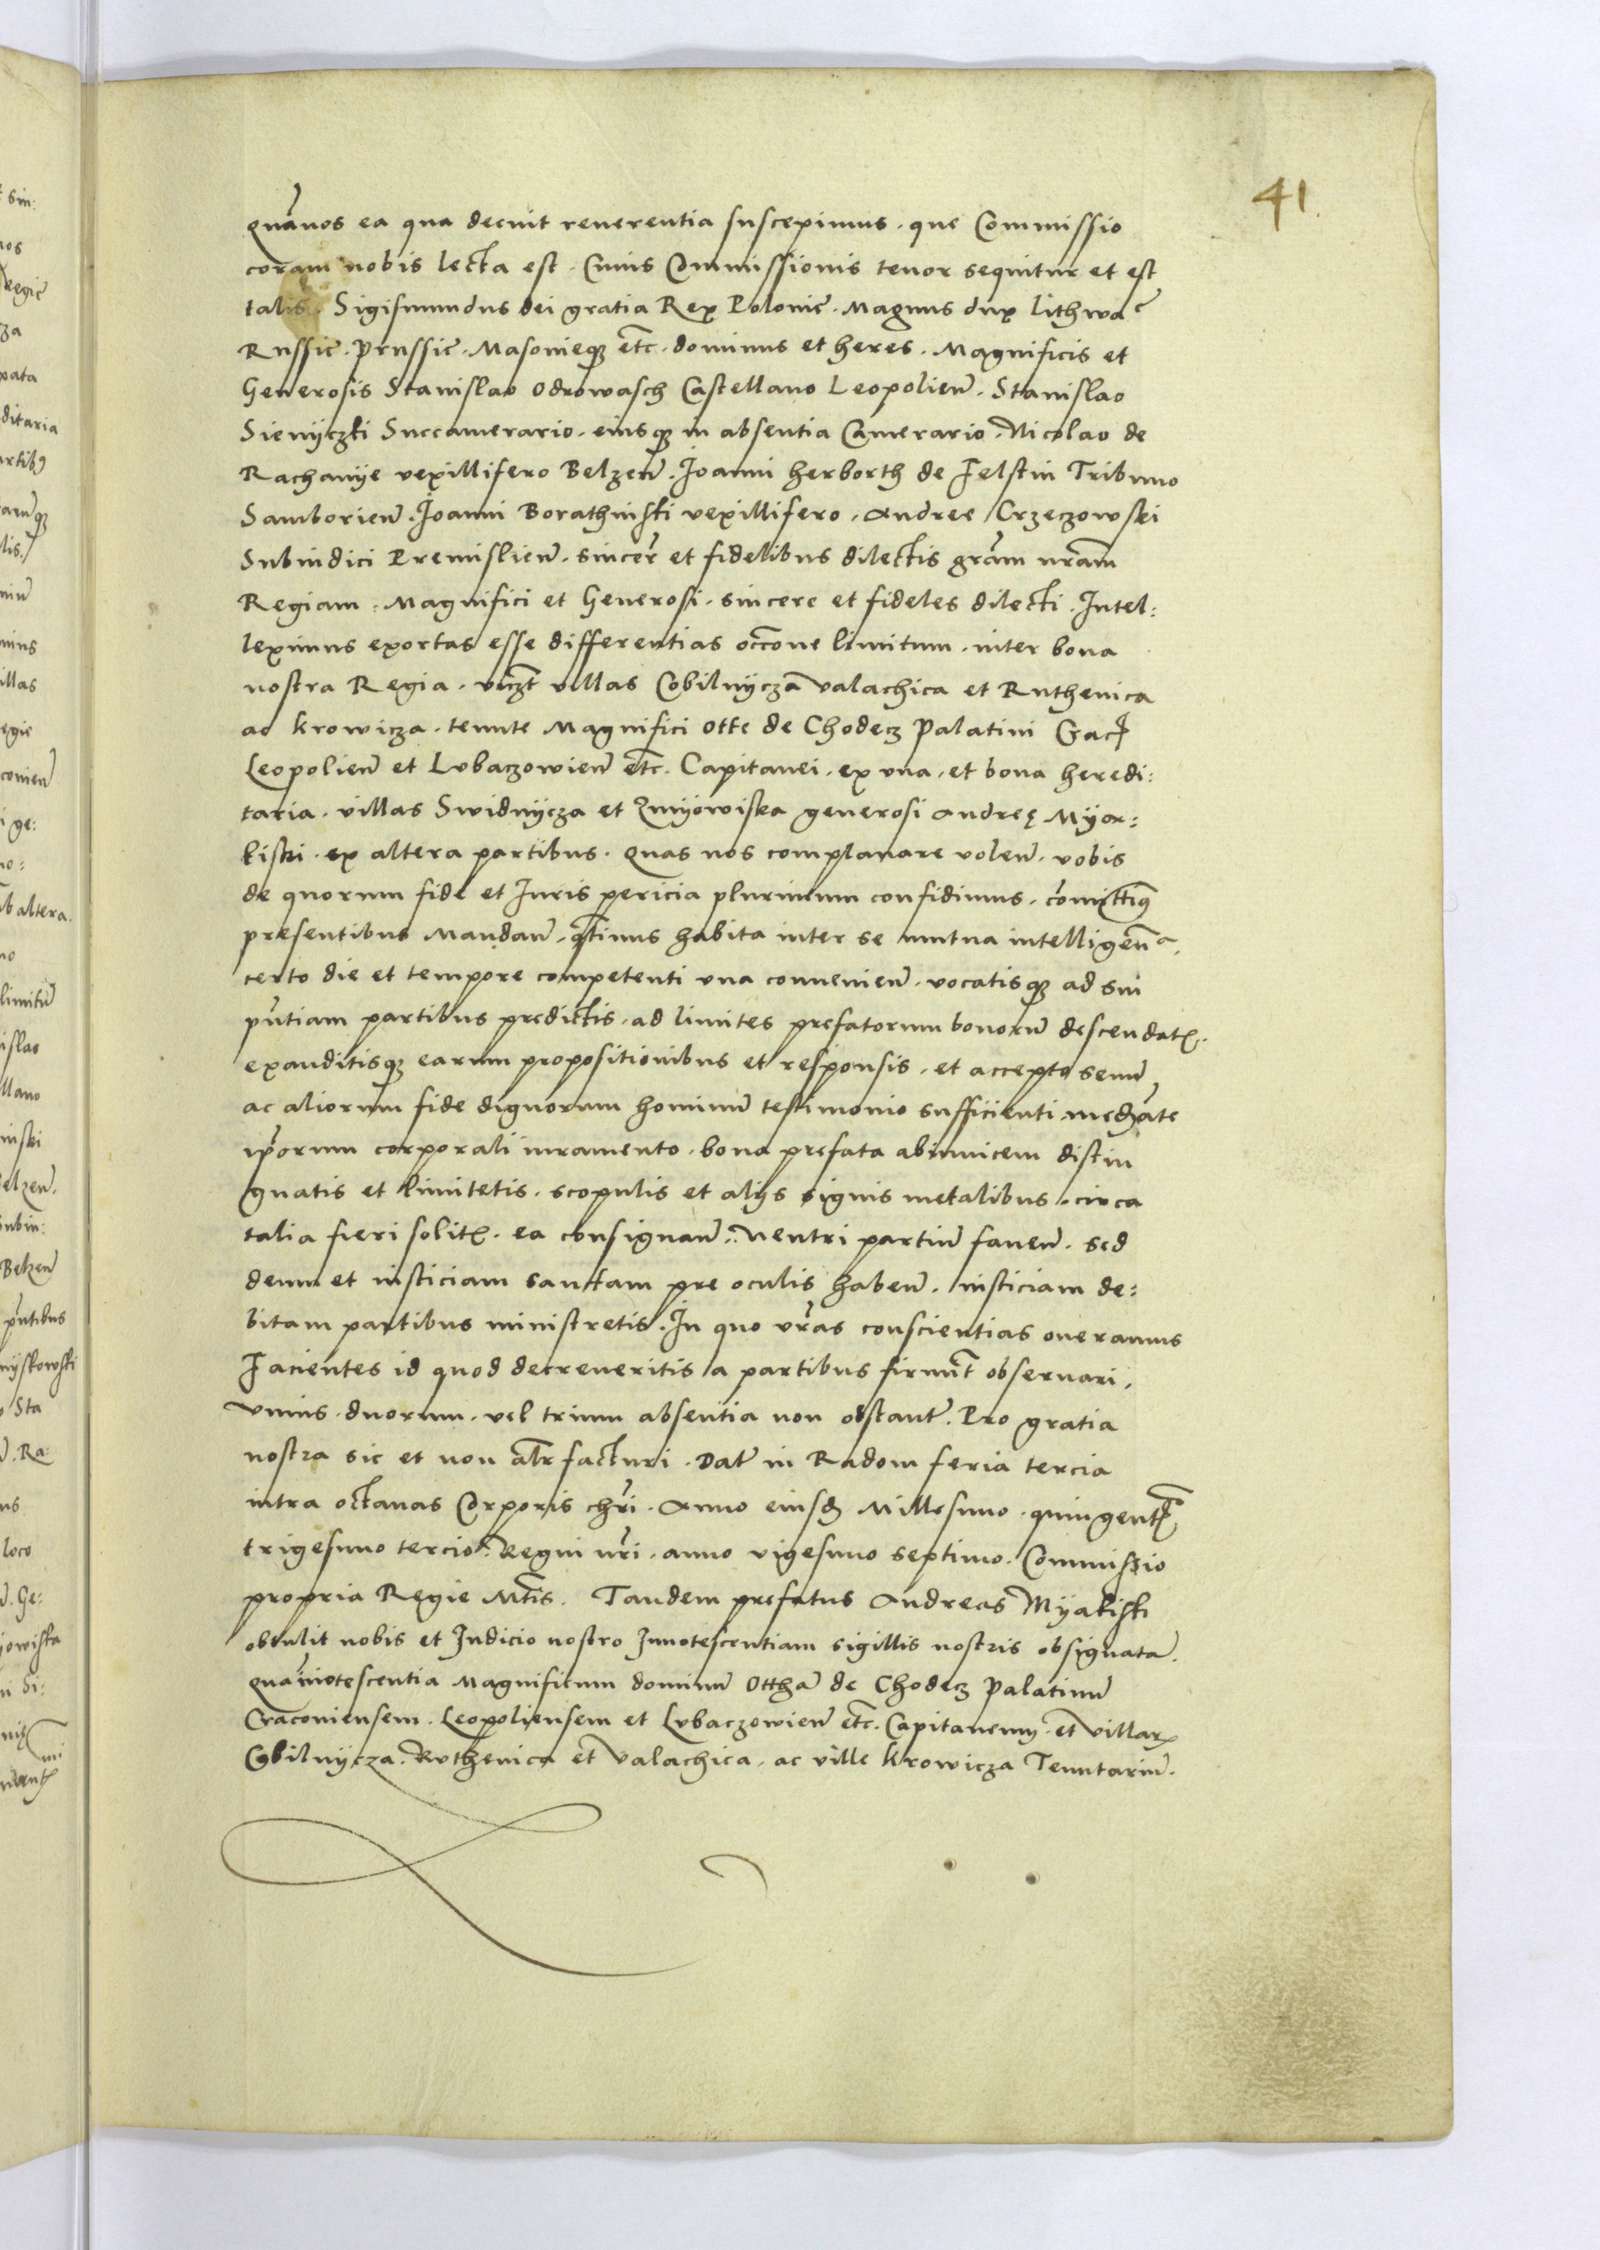 41.
quāuos ea qua decuit reuerentia suscepimus. que Commissio
coram nobis lecta est. Cuius Commissionis tenor sequitur et est
talis. Sigismundus dei gratia Rex Polonie. Magnus dux Lithwa͞e
Russie. Prussie. Masouieq; etc̄. dominus et heres. Magnificis et
Generosis Stanislao Odrowasch Castellano Leopolien̄. Stanislao
Sienyczki Succamerario. eiusq; in absentia Camerario. Nicolao de
Rachanye vexillifero Belzen̄. Joanni herborth de Felstin Tribuno
Samborien̄. Joanni Borathinski vexillifero. Andree Crzeczowski
Subiudici Premislien̄. sincer̄ et fidelibus dilectis grām nrām
Regiam. Magnifici et Generosi. sincere et fideles dilecti. Intel:
leximus exortas esse differentias occ̄one limitum. inter bona
nostra Regia. vicz̄t villas Cobilnycza Valachica et Ruthenica
ac krowicza. tenute Magnifici Otte de Chodecz Palatini Crac̄
Leopolien̄ et Lubaczowien̄ etc̄. Capitanei. ex vna. et bona heredi:
taria. villas Swidnycza et Zmyowiska generosi Andreę Mya:
kiski. ex altera partibus. quas nos complanare volen̄. vobis
de quorum fide et Juris pericia plurimum confidimus. com̄ittim9
presentibus Mandan̄. q̄tinus habita inter se mutua intelligen̄a.
certo die et tempore competenti vna conuenien̄. vocatisq; ad sui
pn̄tiam partibus predictis. ad limites prefatorum bonorū descendat.
exauditisq; earum propositionibus et responsis. et accepto senū
ac aliorum fide dignorum hominū testimonio sufficienti mediāte
ip̄orum corporali iuramento. bona prefata abinuicem distin
guatis et limitetis. scopulis et alijs signis metalibus. circa
talia fieri solit. ea consignan̄. Neutri partiū fauen̄. sed
deum et iusticiam sanctam pre oculis haben̄. iusticiam de:
bitam partibus ministretis. In quo vr̄as conscientias oneramus
Facientes id quod decreueritis a partibus firmīt obseruari.
Vnius. duorum. vel trium absentia non obstant̄. Pro gratia
nostra sic et non alr̄ facturi. Dat̄ in Radom feria tercia
intra octauas Corporis chr̄i. Anno eiusd Millesimo. quingent̄
trigesimo tercio. Regni nr̄i. anno vigesimo septimo. Commissio
propria Regie Mt̄is. Tandem prefatus Andreas Myakiski
obtulit nobis et Judicio nostro Innotescentiam sigillis nostris obsignatā.
quāinotescentia Magnificum dominū Otthā de Chodecz Palatinū
Cracouiensem. Leopoliensem et Lubaczowien̄ etc̄. Capitaneum. et villar
Cobilnycza. Ruthenica et Valachica. ac ville krowicza Tenutariū.